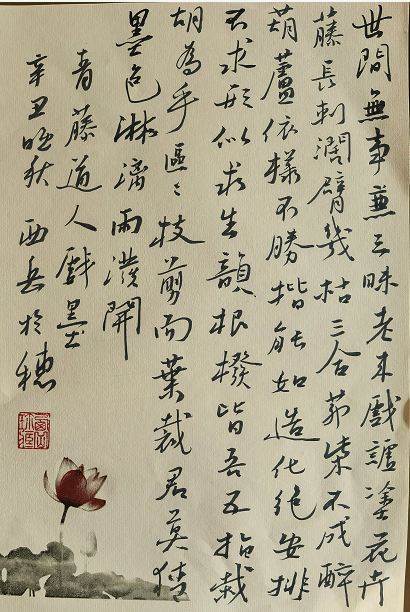 世間無事無三昧老来戲謔塗花卉
藤長刺濶臂幾枯三合茅柴不成醉
葫蘆依樣不勝揩能如造化絕安排
不求形似求生韻根撥皆吾五指栽
胡為乎區々枝剪而葉裁君莫猜
墨色淋漓雨潑開
青藤道人戲墨
辛丑晚秋 西岳於穗